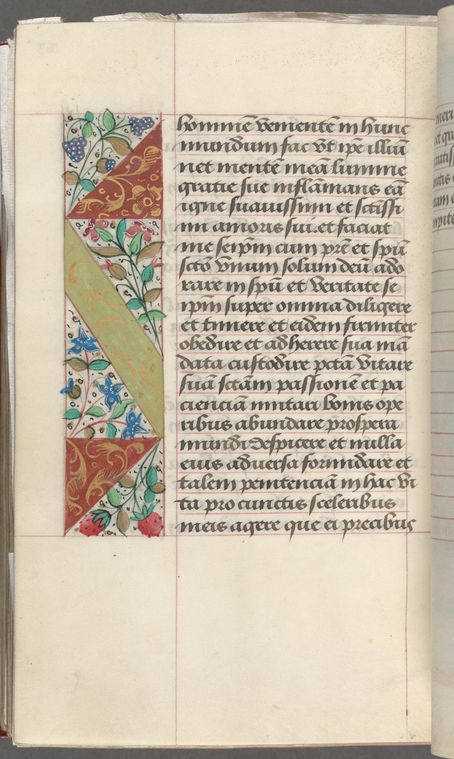 hominē venientē in hunc
mundum fac vt ipe illu
net mentē meā lumine
gratie sue inflāmans eā
igne suauissimi et sctissi
mi amoris sui. et faciat
me seipm cum prē et spū
scto vnum solum deū ado
rare in spū et veritate se
ipm super omnia diligere
et timere et eidem firmiter
obedire et adherere sua mā
data custodire pctā vitare
suā sctām passionē et pa
cienciā imitari bonis ope
ribus abundare prospera
mundi despicere et nulla
eius aduersa formidare et
talem penitenciā in hac vi
ta pro cunctis sceleribus
meis agere que ei precibus